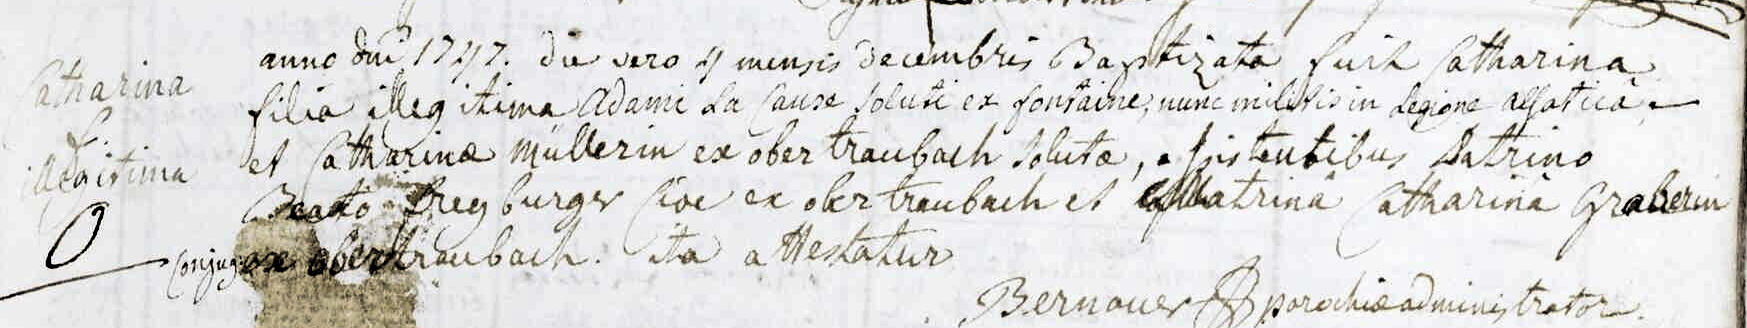 anno dni 1747. die vero 4 mensis decembris Baptizata fuit Catharina
Catharina
filia illegitima Adami La Cause soluti ex fontaine, nunc militis in Legione alsatica
et Catharinæ Müllerin ex obertraubach solutæ, assistentibus Patrino
illegitima
Beato freyburger Cive ex obertraubach et Matrina Catharina Graberin
conjug: ex obertraubach. ita attestatur
Bernauer parochiæ administrator.